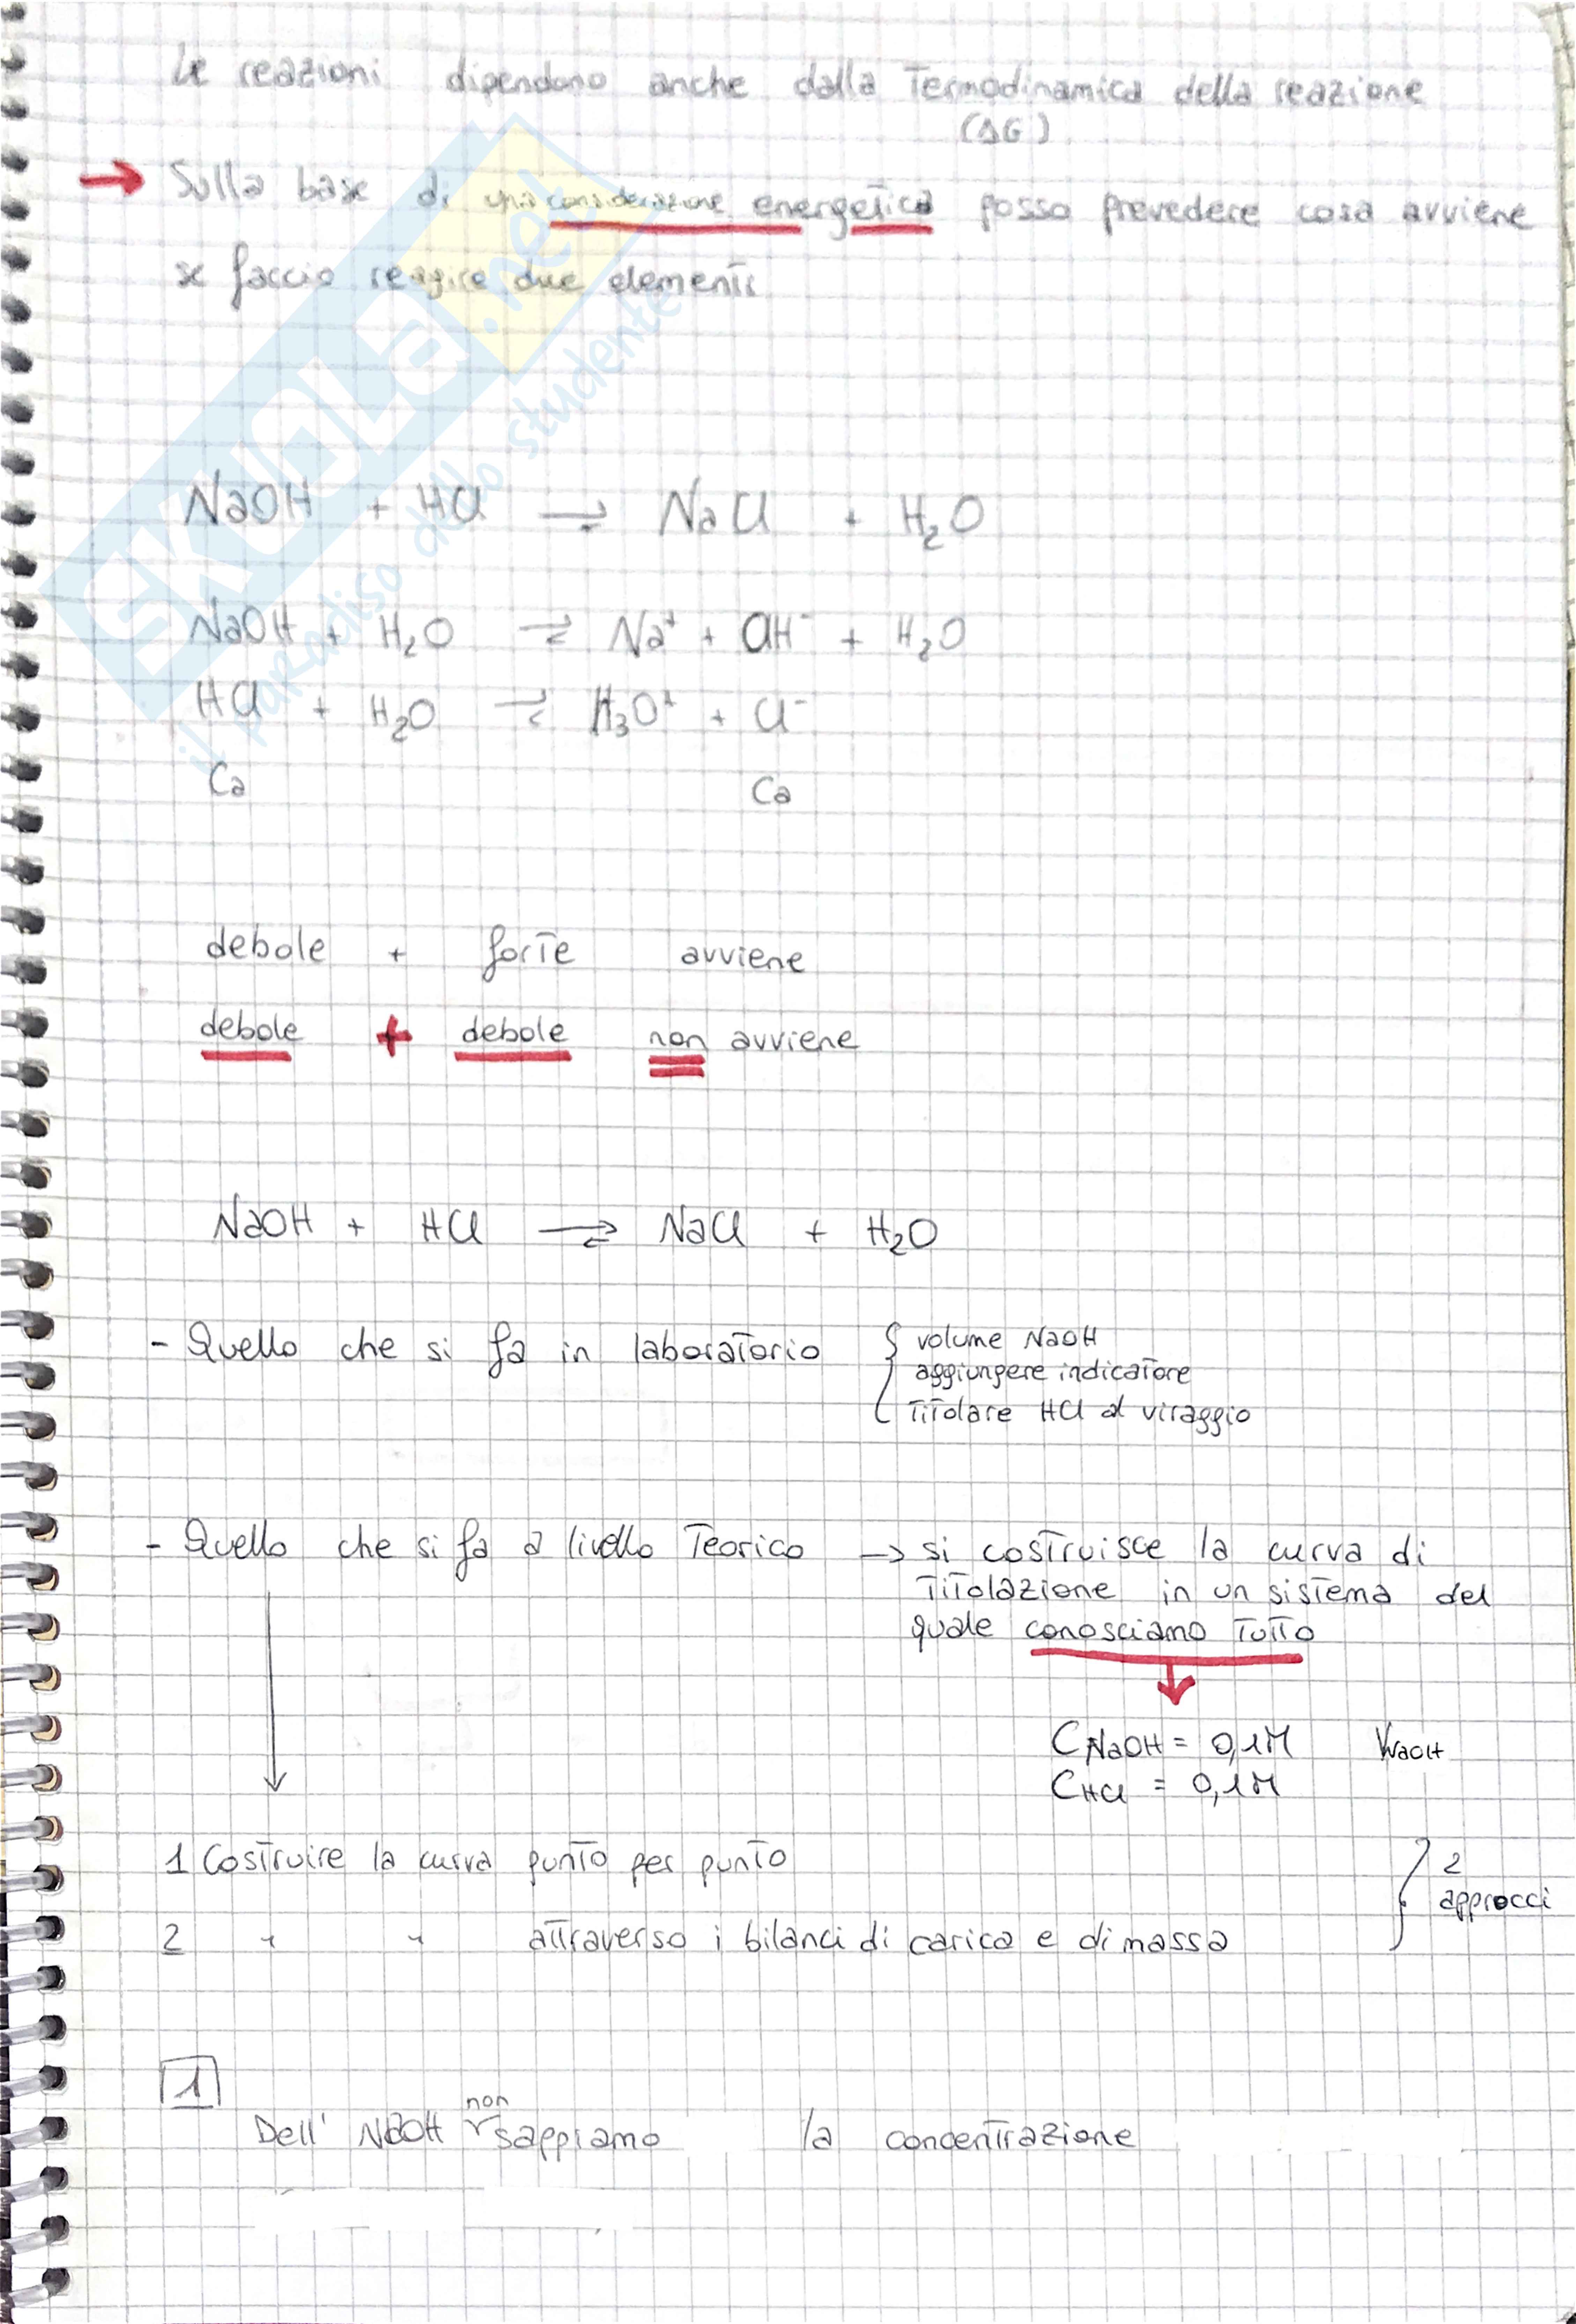 Le reazioni dipendono anche dalla Termodinamica della reazione
(ΔG)
→ Sulla base di una considerazione energetica posso prevedere cosa avviene
se faccio reagire due elementi
NaOH + HCl ⇌ NaCl + H₂O
NaOH + H₂O ⇌ Na⁺ + OH⁻ + H₂O
HCl + H₂O ⇌ H₃O⁺ + Cl⁻
Ca Ca
debole + forte avviene
debole + debole non avviene
NaOH + HCl ⇌ NaCl + H₂O
- Quello che si fa in laboratorio { volume NaOH
aggiungere indicatore
Titolare HCl al viraggio
- Quello che si fa a livello Teorico → si costruisce la curva di
Titolazione in un sistema del
quale conosciamo Tutto
CNaOH = 0,1M VNaOH
CHCl = 0,1M
1 Costruire la curva punto per punto
2 " " attraverso i bilanci di carica e di massa
} 2
approcci
1
Dell' NaOH non sappiamo la concentrazione
SKUOLA.net
il paradiso dello studente